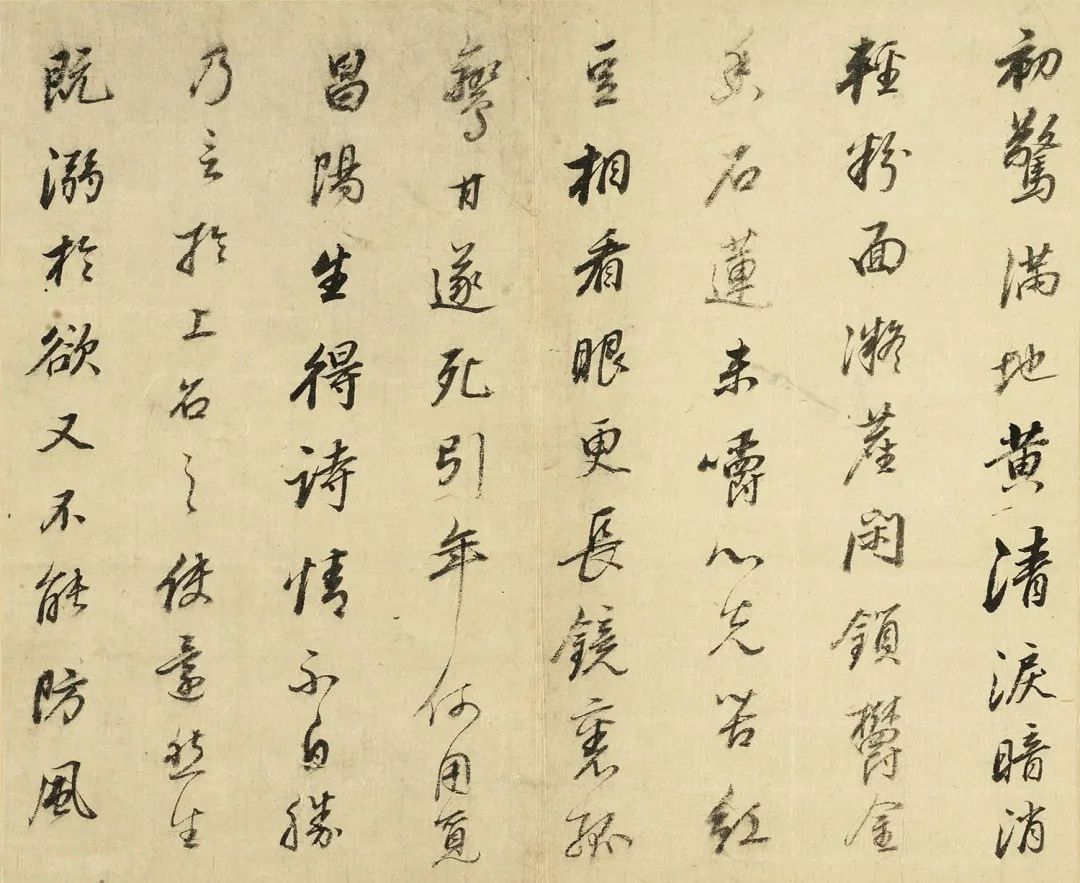 初驚滿地黃清淚暗消
輕粉面凝塵閑鎖鬱金
香石蓮未嚼心先苦紅
豆相看眼更長鏡裏孤
鸞甘遂死引年何用覓
昌陽生得詩情不自勝
乃言於上召之使還然生
既溺於欲又不能防風